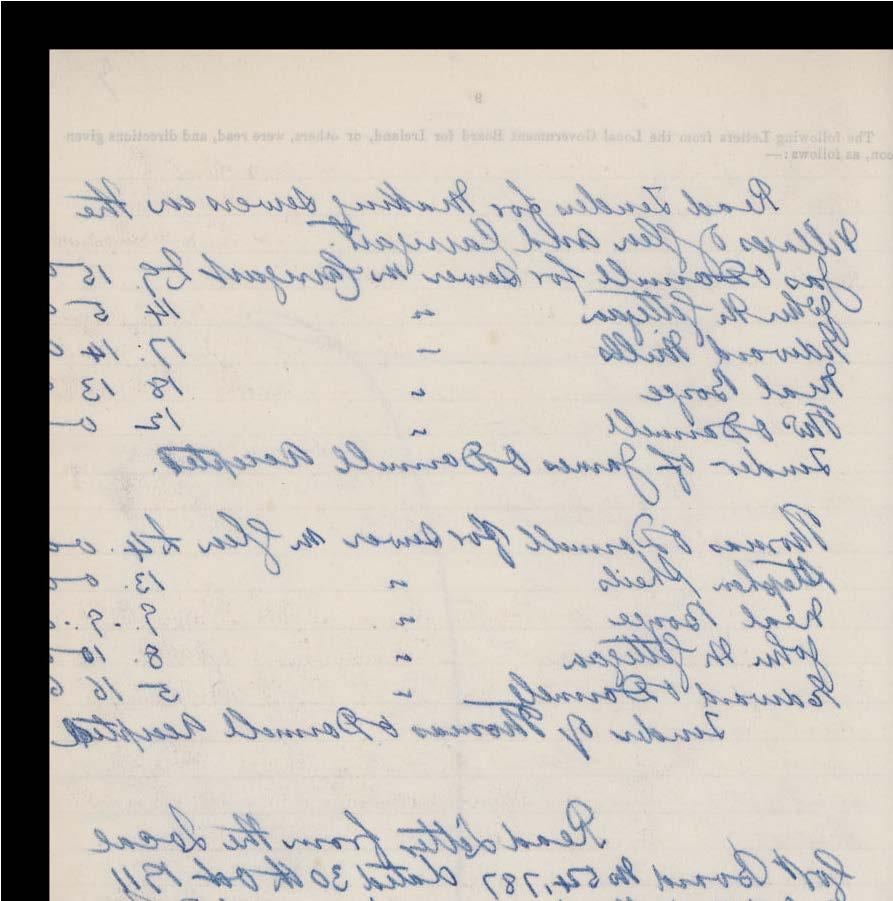 9
The following Letters from the Local Government Board for Ireland, or others, were read, and directions given
eon, as follows:—
Read Tender for Making Sewers in the
Villages of Glen and Carrigart.
Jas O'Donnell for Sewer in Carrigart £9. 15
John Mc Gettigan " 14 5
Edward Mills " 17. 14
Neal Boyce " 18 13
Thos O'Donnell " 12 0
Tender of James O'Donnell Accepted.
Thomas O'Donnell for Sewer in Glen £4. 0.0
Stephen Sheils " 13. 0
Neal Boyce " 9. 9.
John Mc Gettigan " 8. 10
Edward O'Donnell " 5 16 6
Tender of Thomas O'Donnell Accepted
Read Letter from the Local
Govt Board No 54,787 dated 30th Oct 1911